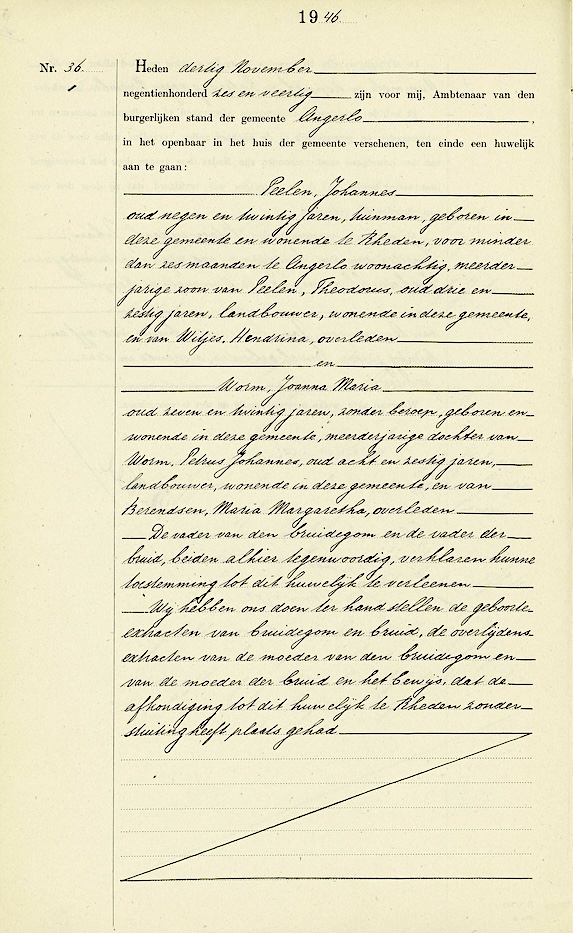 19 46.
Nr. 36. Heden dertig November
negentienhonderd zes en veertig zijn voor mij, Ambtenaar van den
burgerlijken stand der gemeente Angerlo,
in het openbaar in het huis der gemeente verschenen, ten einde een huwelijk
aan te gaan:
Peelen, Johannes
oud negen en twintig jaren, tuinman, geboren in
deze gemeente en wonende te Rheden, voor minder
dan zes maanden te Angerlo woonachtig, meerder-
jarige zoon van Peelen, Theodorus, oud drie en
zestig jaren, landbouwer, wonende in deze gemeente,
en van Witjes, Hendrina, overleden
en
Worm, Joanna Maria
oud zeven en twintig jaren, zonder beroep, geboren en
wonende in deze gemeente, meerderjarige dochter van
Worm, Petrus Johannes, oud acht en zestig jaren,
landbouwer, wonende in deze gemeente, en van
Berendsen, Maria Margaretha, overleden
De vader van den bruidegom en de vader der
bruid, beiden alhier tegenwoordig, verklaren hunne
toestemming tot dit huwelijk te verleenen
Wij hebben ons doen ter hand stellen de geboorte-
extracten van bruidegom en bruid, de overlijdens-
extracten van de moeder van den bruidegom en
van de moeder der bruid en het bewijs, dat de
afkondiging tot dit huwelijk te Rheden zonder
stuiting heeft plaats gehad